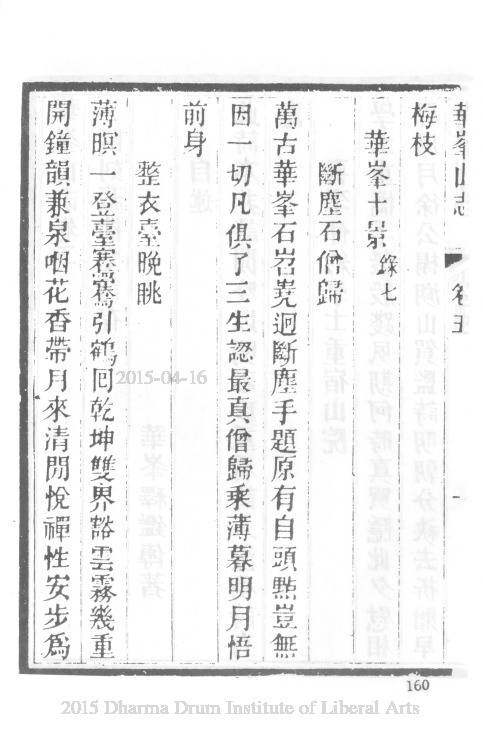 華峯山志 卷五
梅枝
華峯十景 錄七
斷塵石僧歸
萬古華峯石岧嶤迥斷塵手題原有自頭㸃豈無
因一切凡俱了三生認最真僧歸乘薄暮明月悟
前身
整衣臺晚眺
薄暝一登臺褰裳引鶴回乾坤雙界豁雲霧幾重
開鐘韻兼泉咽花香帶月來清閒悅禪性安步爲
160
2015-04-16
2015 Dharma Drum Institute of Liberal Arts